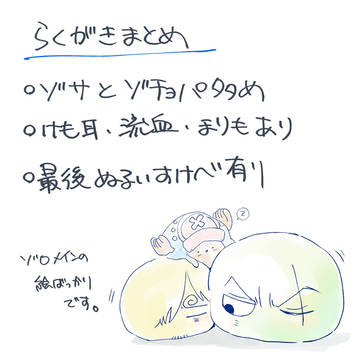 らくがきまとめ
○ゾサとゾチョパタタめ
○けも耳、流血、まりもあり
○最後ぬるいすけべ有り
ゾロメインの
絵ばっかり
です。